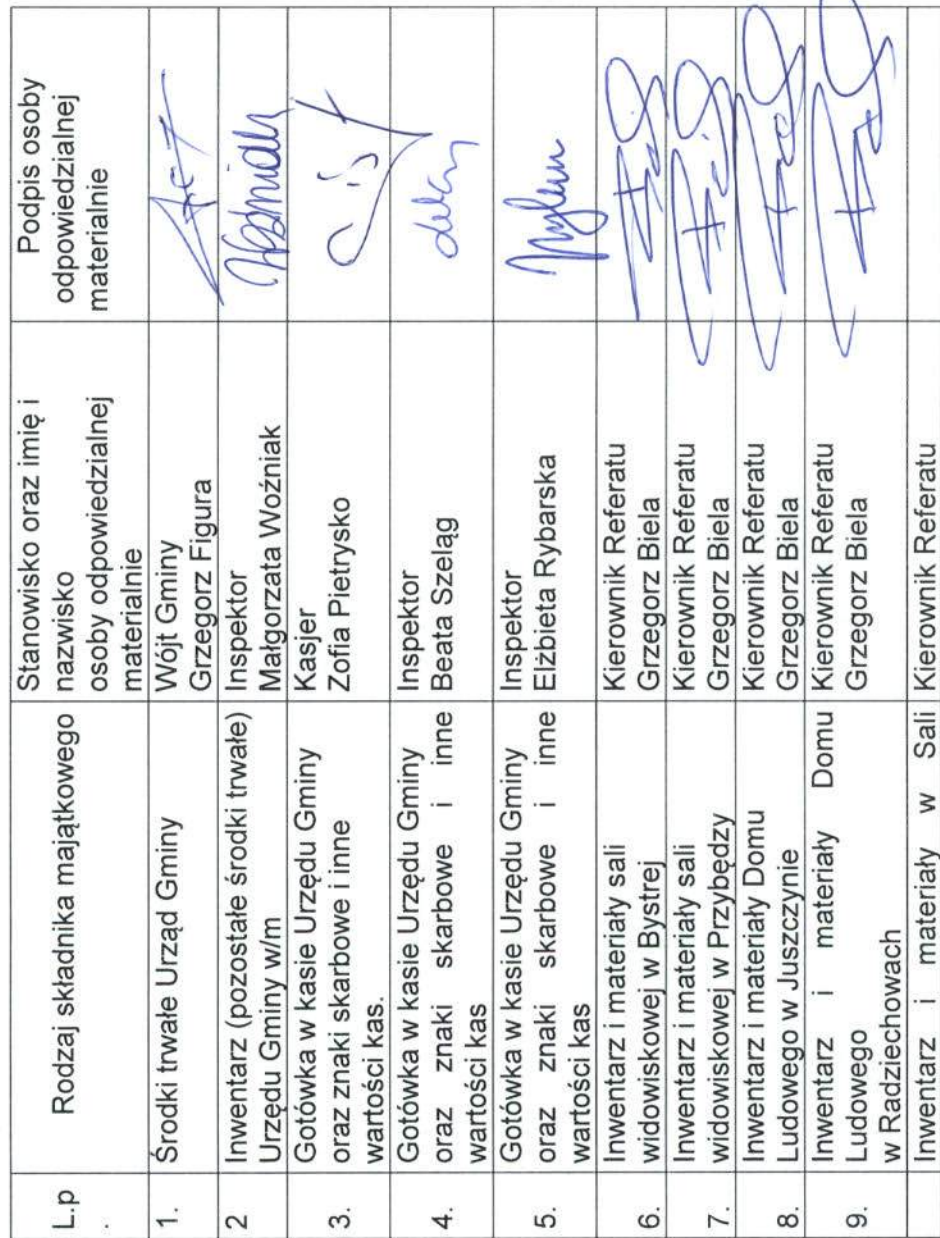 L.p
.
Rodzaj składnika majątkowego
Stanowisko oraz imię i
nazwisko
osoby odpowiedzialnej
materialnie
Podpis osoby
odpowiedzialnej
materialnie
1.
Środki trwałe Urząd Gminy
Wójt Gminy
Grzegorz Figura
2
Inwentarz (pozostałe środki trwałe)
Urzędu Gminy w/m
Inspektor
Małgorzata Woźniak
3.
Gotówka w kasie Urzędu Gminy
oraz znaki skarbowe i inne
wartości kas.
Kasjer
Zofia Pietrysko
4.
Gotówka w kasie Urzędu Gminy
oraz znaki skarbowe i inne
wartości kas
Inspektor
Beata Szeląg
5.
Gotówka w kasie Urzędu Gminy
oraz znaki skarbowe i inne
wartości kas
Inspektor
Elżbieta Rybarska
6.
Inwentarz i materiały sali
widowiskowej w Bystrej
Kierownik Referatu
Grzegorz Biela
7.
Inwentarz i materiały sali
widowiskowej w Przybędzy
Kierownik Referatu
Grzegorz Biela
8.
Inwentarz i materiały Domu
Ludowego w Juszczynie
Kierownik Referatu
Grzegorz Biela
9.
Inwentarz i materiały Domu
Ludowego
w Radziechowach
Kierownik Referatu
Grzegorz Biela
Inwentarz i materiały w Sali
Kierownik Referatu